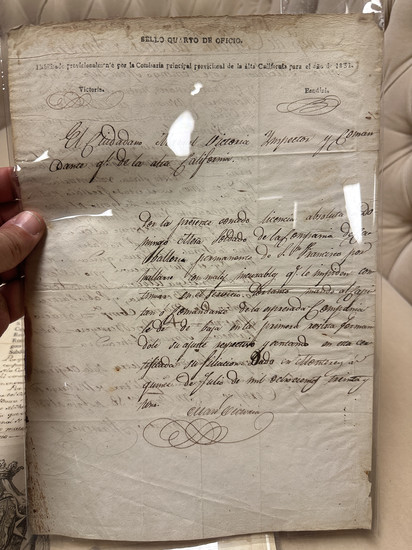 SELLO QUARTO DE OFICIO.
Habilitado provisionalmente por la Comisaría principal provisional de la Alta California para el año de 1831.
Victoria. Bandini.
El Ciudadano Manuel Victoria Ynspector y Coman
dante gl. de la alta California.
Por la presente concedo licencia absoluta
Soldado de la Compañia de Ca
balleria permanente de S. Francisco por
hallarse con males incurables qe. le impiden con
tinuar en el servicio. Por tanto mando al Capi
tan o Comandante de la expresada Compañia
le de de baja en la primera revista forman
dole su ajuste respectivo y constando en esta cer
tificada su filiacion. Dado en Monterrey a
quince de Julio de mil ochocientos treinta y
uno.
Man.l Victoria